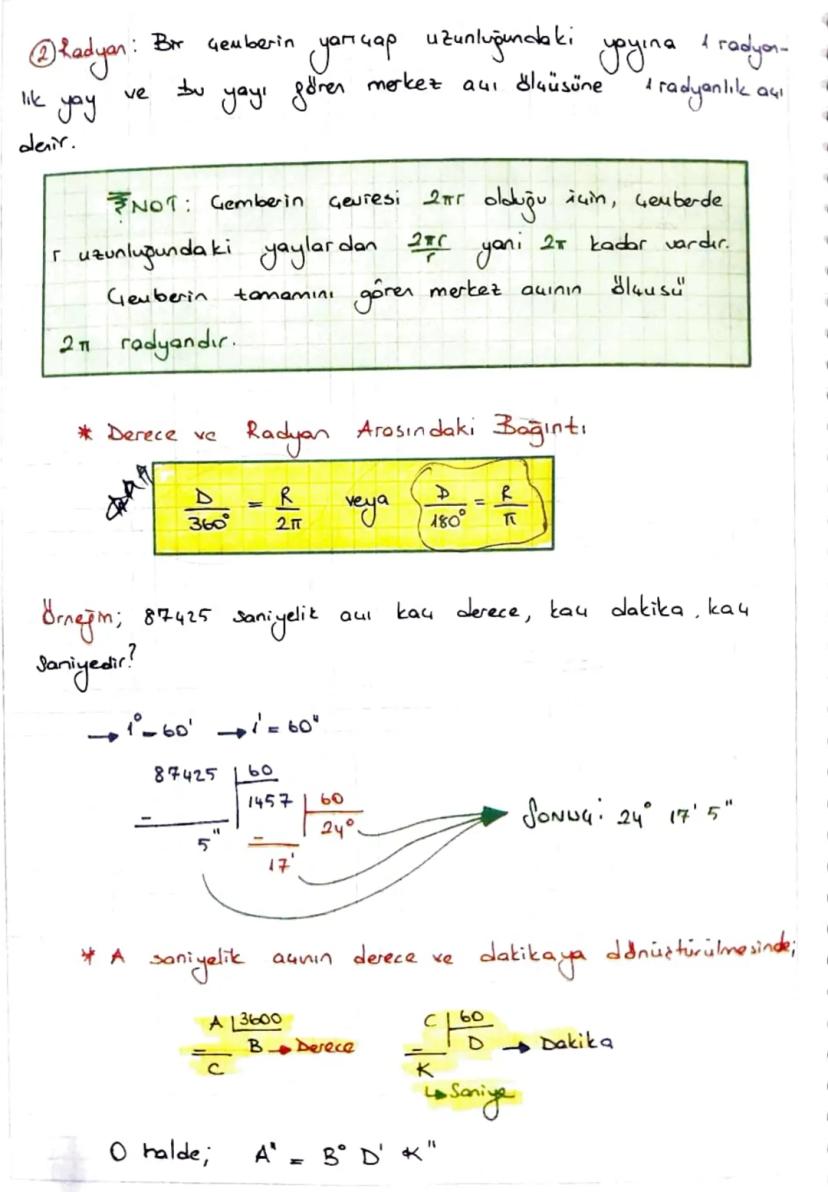 ② Radyan: Bir çemberin yarıçap uzunluğundaki yayına 1 radyan-
lık yay ve bu yayı gören merkez açı ölçüsüne 1 radyanlık açı
denir.
NOT: Çemberin çevresi 2πr olduğu için, çemberde
r uzunluğundaki yaylardan 2πr/r yani 2π kadar vardır.
Çemberin tamamını gören merkez açının ölçüsü
2π radyandır.
* Derece ve Radyan Arasındaki Bağıntı
D/360° = R/2π veya D/180° = R/π
Örneğin; 87425 saniyelik açı kaç derece, kaç dakika, kaç
saniyedir?
→ 1° = 60' → 1' = 60"
87425 | 60
1457 | 60
- 24°
5" -
17'
SONUÇ: 24° 17' 5"
* A saniyelik açının derece ve dakikaya dönüştürülmesinde;
A | 3600 C | 60
- B → Derece - D → Dakika
C K
↳ Saniye
O halde; A" = B° D' K"